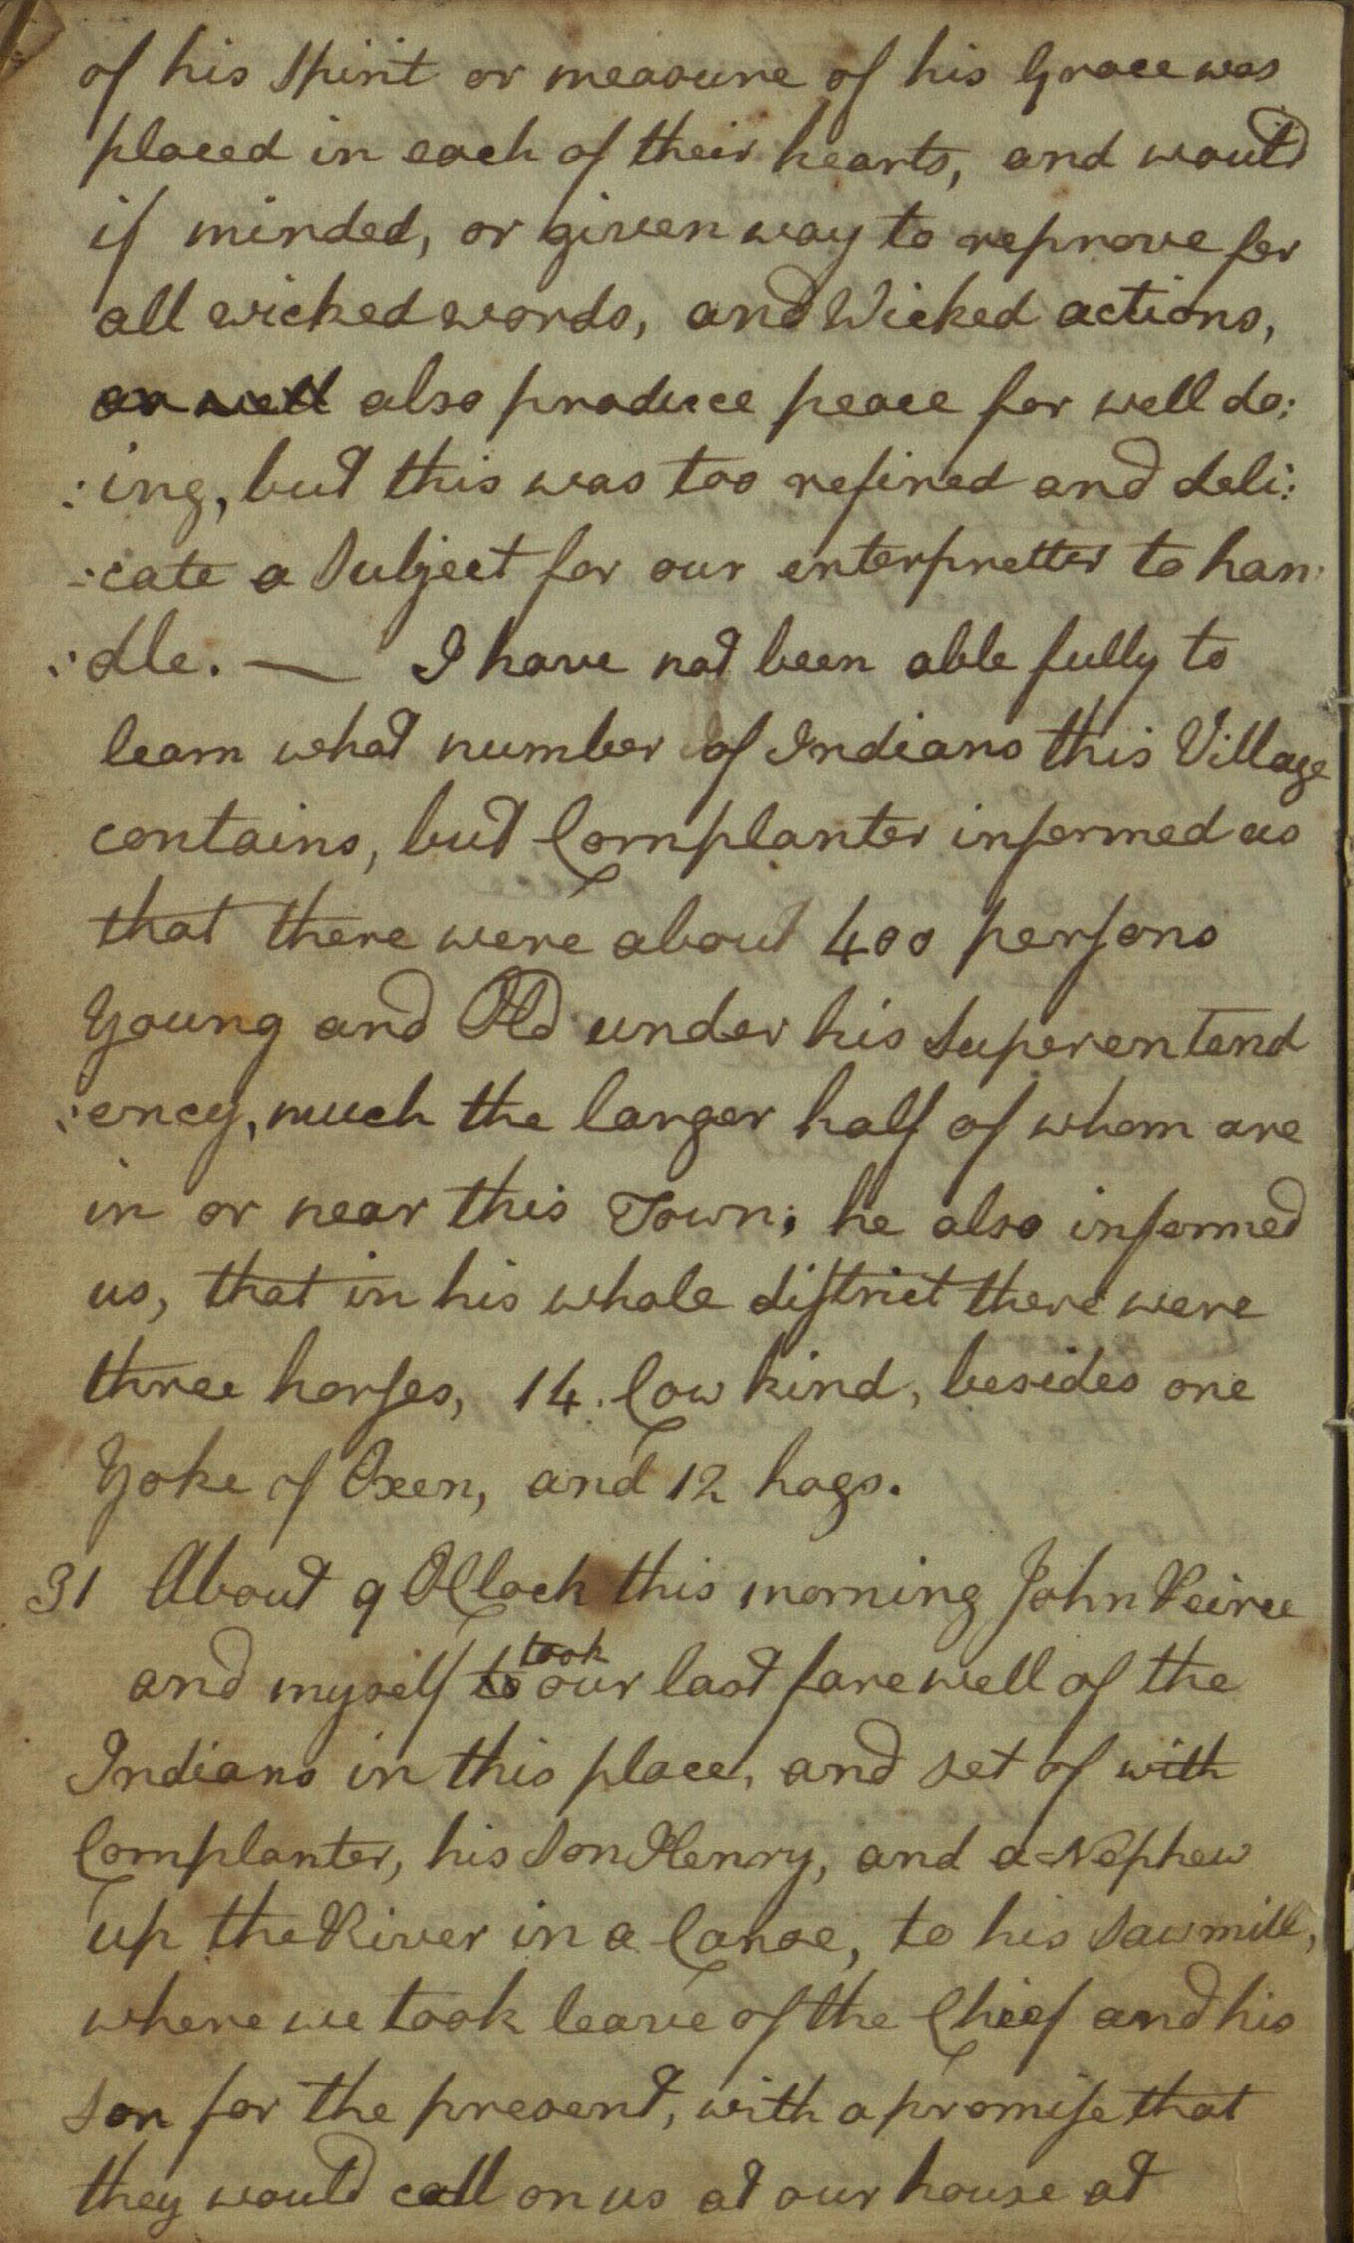 of his Spirit or measure of his Grace was
placed in each of their hearts, and would
if minded, or given way to reprove for
all wicked words, and Wicked actions,
also produce peace for well do:
:ing, but this was too refined and deli:
-:cate a Subject for our enterpretter to han:
:dle. — I have not been able fully to
learn what number of Indians this Village
contains, but Cornplanter informed us
that there were about 400 persons
Young and Old under his Superentend
:ency, much the larger half of whom are
in or near this Town; he also informed
us, that in his whole district there were
three horses, 14. Cow kind, besides one
Yoke of Oxen, and 12 hogs.
31 About 9 OClock this morning John Peirce
and myself to took our last farewell of the
Indians in this place, and set of with
Cornplanter, his Son Henry, and a Nephew
up the River in a Canoe, to his Sawmill,
where we took leave of the Chief and his
Son for the present, with a promise that
they would call on us at our house at